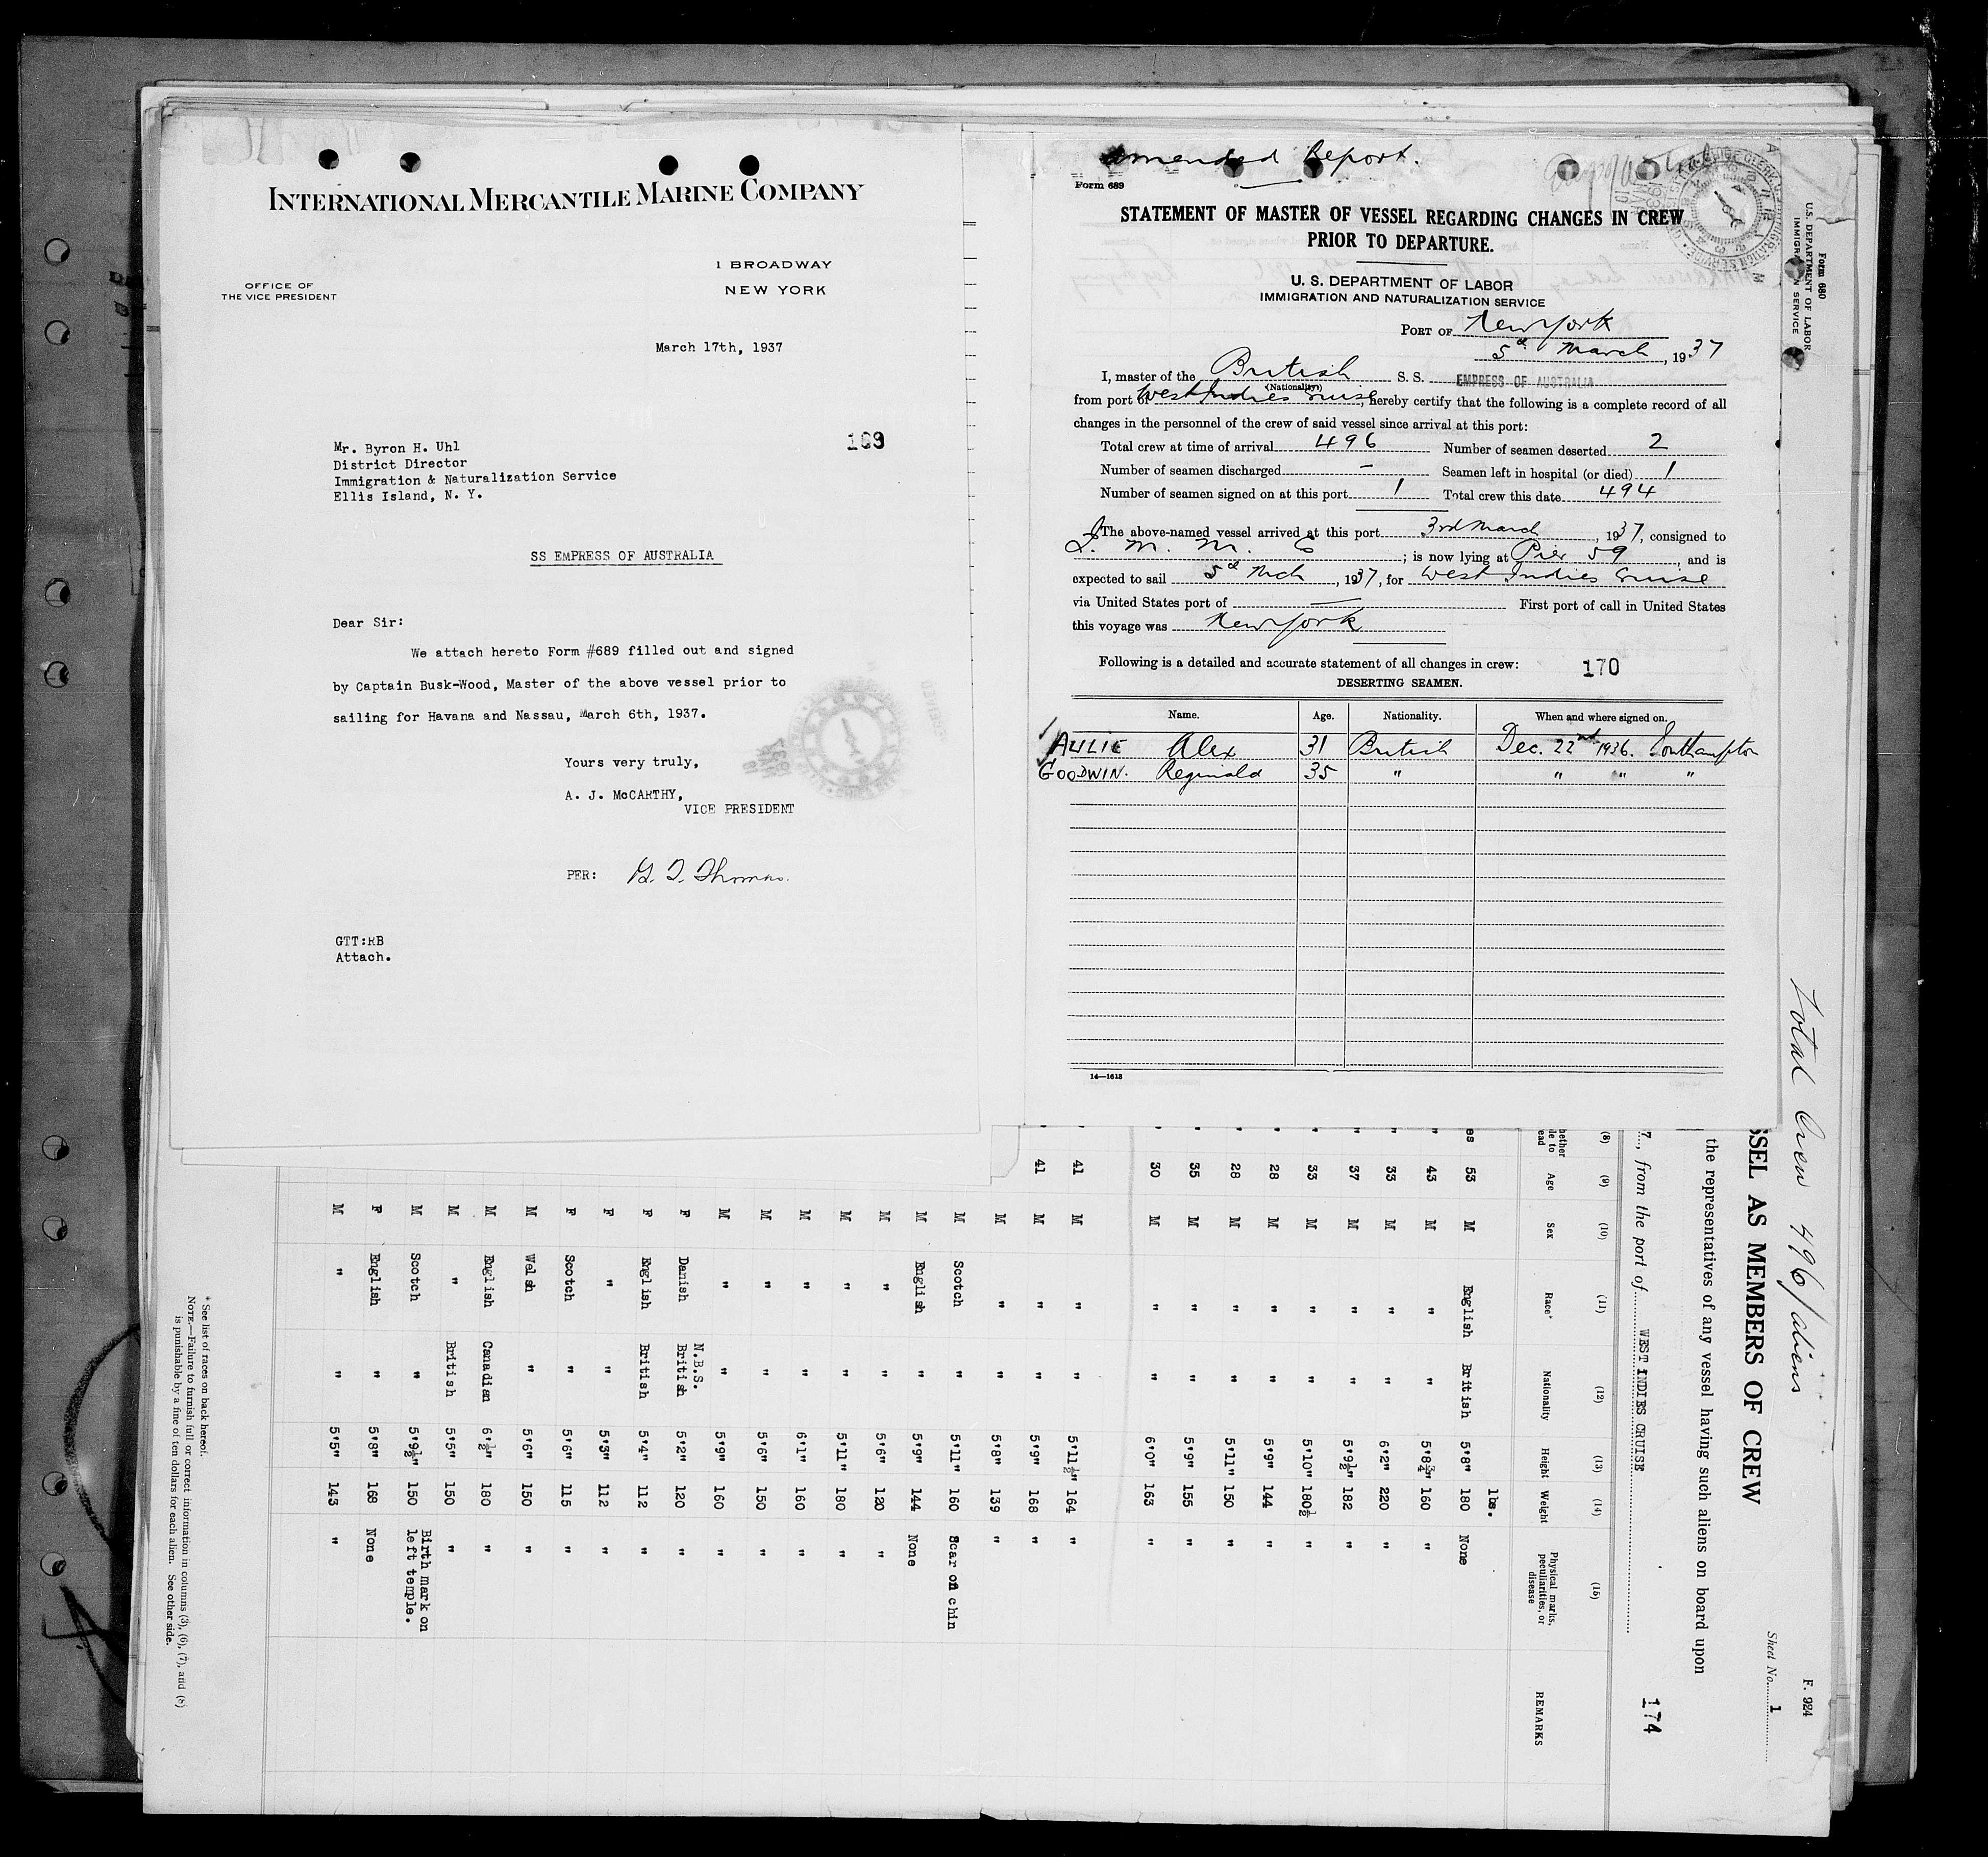 INTERNATIONAL MERCANTILE MARINE COMPANY
1 BROADWAY
NEW YORK
OFFICE OF
THE VICE PRESIDENT
March 17th, 1937
Mr. Byron H. Uhl
District Director
Immigration & Naturalization Service
Ellis Island, N. Y.
SS EMPRESS OF AUSTRALIA
Dear Sir:
We attach hereto Form #689 filled out and signed
by Captain Busk-Wood, Master of the above vessel prior to
sailing for Havana and Nassau, March 6th, 1937.
Yours very truly,
A. J. McCARTHY,
VICE PRESIDENT
PER: G. T. Thomas.
GTT:RB
Attach.
Amended Report.
Form 689
STATEMENT OF MASTER OF VESSEL REGARDING CHANGES IN CREW
PRIOR TO DEPARTURE.
U. S. DEPARTMENT OF LABOR
IMMIGRATION AND NATURALIZATION SERVICE
PORT OF New York
5th March, 1937
I, master of the British S. S. EMPRESS OF AUSTRALIA
(Nationality)
from port of West Indies Cruise, hereby certify that the following is a complete record of all
changes in the personnel of the crew of said vessel since arrival at this port:
Total crew at time of arrival 496 Number of seamen deserted 2
Number of seamen discharged - Seamen left in hospital (or died) 1
Number of seamen signed on at this port 1 Total crew this date 494
The above-named vessel arrived at this port 3rd March, 1937, consigned to
I. M. M. Co; is now lying at Pier 59, and is
expected to sail 5th Mch, 1937, for West Indies Cruise
via United States port of — First port of call in United States
this voyage was New York
Following is a detailed and accurate statement of all changes in crew: 170
DESERTING SEAMEN.
Name. Age. Nationality. When and where signed on.
AULIE Alex 31 British Dec. 22nd 1936. Southampton
GOODWIN. Reginald 35 " " " "
14—1613
Form 680
U. S. DEPARTMENT OF LABOR
IMMIGRATION SERVICE
Total Crew 496 / aliens
F. 924
SSEL AS MEMBERS OF CREW
Sheet No. 1
the representatives of any vessel having such aliens on board upon
7, from the port of WEST INDIES CRUISE
174
(8) (9) (10) (11) (12) (13) (14) (15)
Age Sex Race* Nationality Height Weight Physical marks, peculiarities, or disease REMARKS
lbs.
es 53 M English British 5'8" 180 None
" 43 M " " 5'8¾" 160 "
" 33 M " " 6'2" 220 "
" 37 M " " 5'9½" 182 "
" 33 M " " 5'10" 180½ "
" 28 M " " 5'9" 144 "
" 28 M " " 5'11" 150 "
" 35 M " " 5'9" 155 "
" 30 M " " 6'0" 163 "
" 41 M " " 5'11½" 164 "
" 41 M " " 5'9" 168 "
M " " 5'8" 139 "
M Scotch " 5'11" 160 Scar on chin
M English " 5'9" 144 None
M " " 5'6" 120 "
M " " 5'11" 180 "
M " " 6'1" 160 "
M " " 5'6" 150 "
M " " 5'9" 160 "
N.B.S.
F Danish British 5'2" 120 "
F English British 5'4" 112 "
F " " 5'3" 112 "
F Scotch " 5'6" 115 "
M Welsh " 5'6" 150 "
M English Canadian 6'½" 180 "
M " British 5'5" 150 "
M Scotch " 5'9½" 150 Birth mark on left temple.
F English " 5'8" 168 None
M " " 5'5" 143 "
* See list of races on back hereof.
NOTE.—Failure to furnish full or correct information in columns (3), (6), (7), and (8)
is punishable by a fine of ten dollars for each alien. See other side.